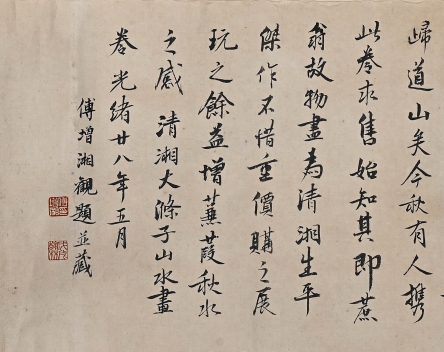 歸道山矣今秋有人攜
此卷求售始知其即蔗
翁故物畫為清湘生平
傑作不惜重價購之展
玩之餘益增蒹葭秋水
之感清湘大滌子山水畫
卷光緒廿八年五月
傅增湘觀題並藏